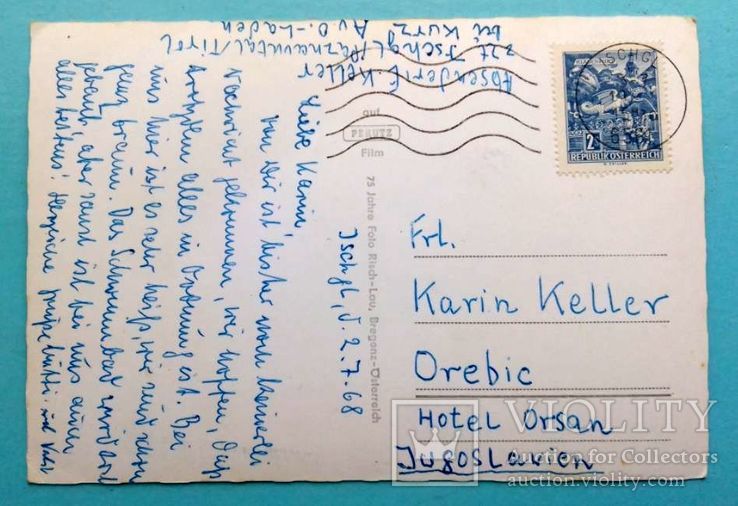 Absender E. Keller
zzt Ischgl/Paznauntal/Tirol
bei Kurz
A. v. O.-Laden
Liebe Karin,
von Dir ist bisher noch keinerlei
Nachricht gekommen, wir hoffen, daß
trotzdem alles in Ordnung ist. Bei
uns hier ist es sehr heiß, wir sind schon
ganz braun. Das Schwimmbad wird erst
gebaut, aber sonst ist bei uns auch
alles bestens! Herzliche Grüße Mutti und Vati
Ischgl, d. 2.7.68
auf
PERUTZ
Film
75 Jahre Foto Risch-Lau, Bregenz-Österreich
ISCHGL
2
REPUBLIK ÖSTERREICH
Frl.
Karin Keller
Orebic
Hotel Orsan
Jugoslavien
VIOLITY
Auction for Collectors
auction.violity.com